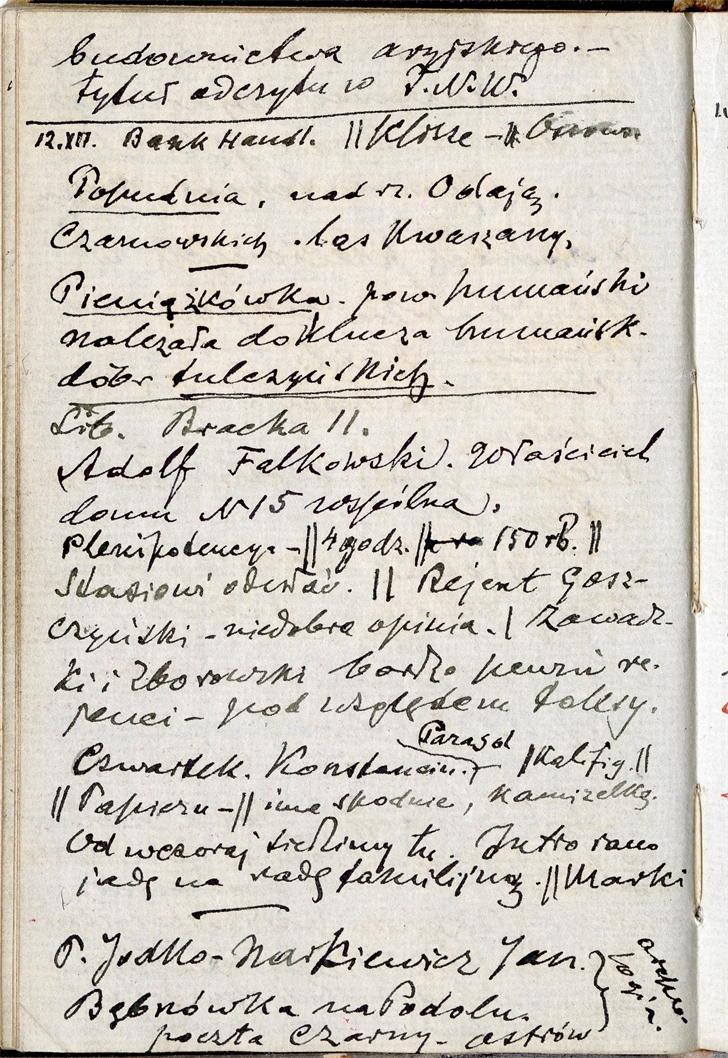 budownictwa aryjskiego.—
tytuł odczytu w T.N.W.
12.XII. Bank Handl. || Klisze — ||
Popudnia, nad rz. Odają.
Czarnowskich. las Kwaszany.
Pieniążkówka. pow. humański
należała do klucza humańsk.
dóbr tulczyńskich.
Lit. Bracka 11.
Adolf Falkowski. właściciel
domu N 15 wspólna.
Plenipotencya — || 4 godz. || 150 rb. ||
Stasiowi odesłać. || Rejent Gosz-
czyński — niedobra opinia. | Zawadz-
ki i Zborowski bardzo pewni re-
jenci — pod względem taksy.
Parasol
Czwartek. Konstancin. || Kalifig. ||
|| Papieru — || inne spodnie, kamizelkę.
Od wczoraj siedzimy tu. Jutro rano
jadę na radę familijną. || Marki
P. Jodko-Narkiewicz Jan.
archeo-
logia.
Bębnówka na Podolu.
poczta Czarny-ostrów